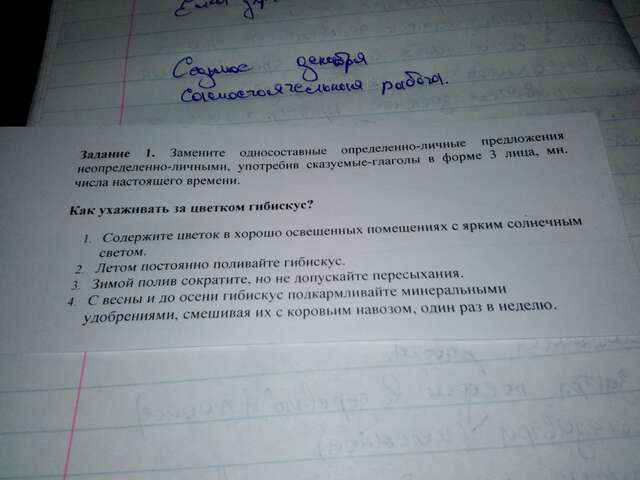 Седмое декабря
Самостоятельная работа.
Задание 1. Замените односоставные определенно-личные предложения
неопределенно-личными, употребив сказуемые-глаголы в форме 3 лица, мн.
числа настоящего времени.
Как ухаживать за цветком гибискус?
1. Содержите цветок в хорошо освещенных помещениях с ярким солнечным
светом.
2. Летом постоянно поливайте гибискус.
3. Зимой полив сократите, но не допускайте пересыхания.
4. С весны и до осени гибискус подкармливайте минеральными
удобрениями, смешивая их с коровьим навозом, один раз в неделю.